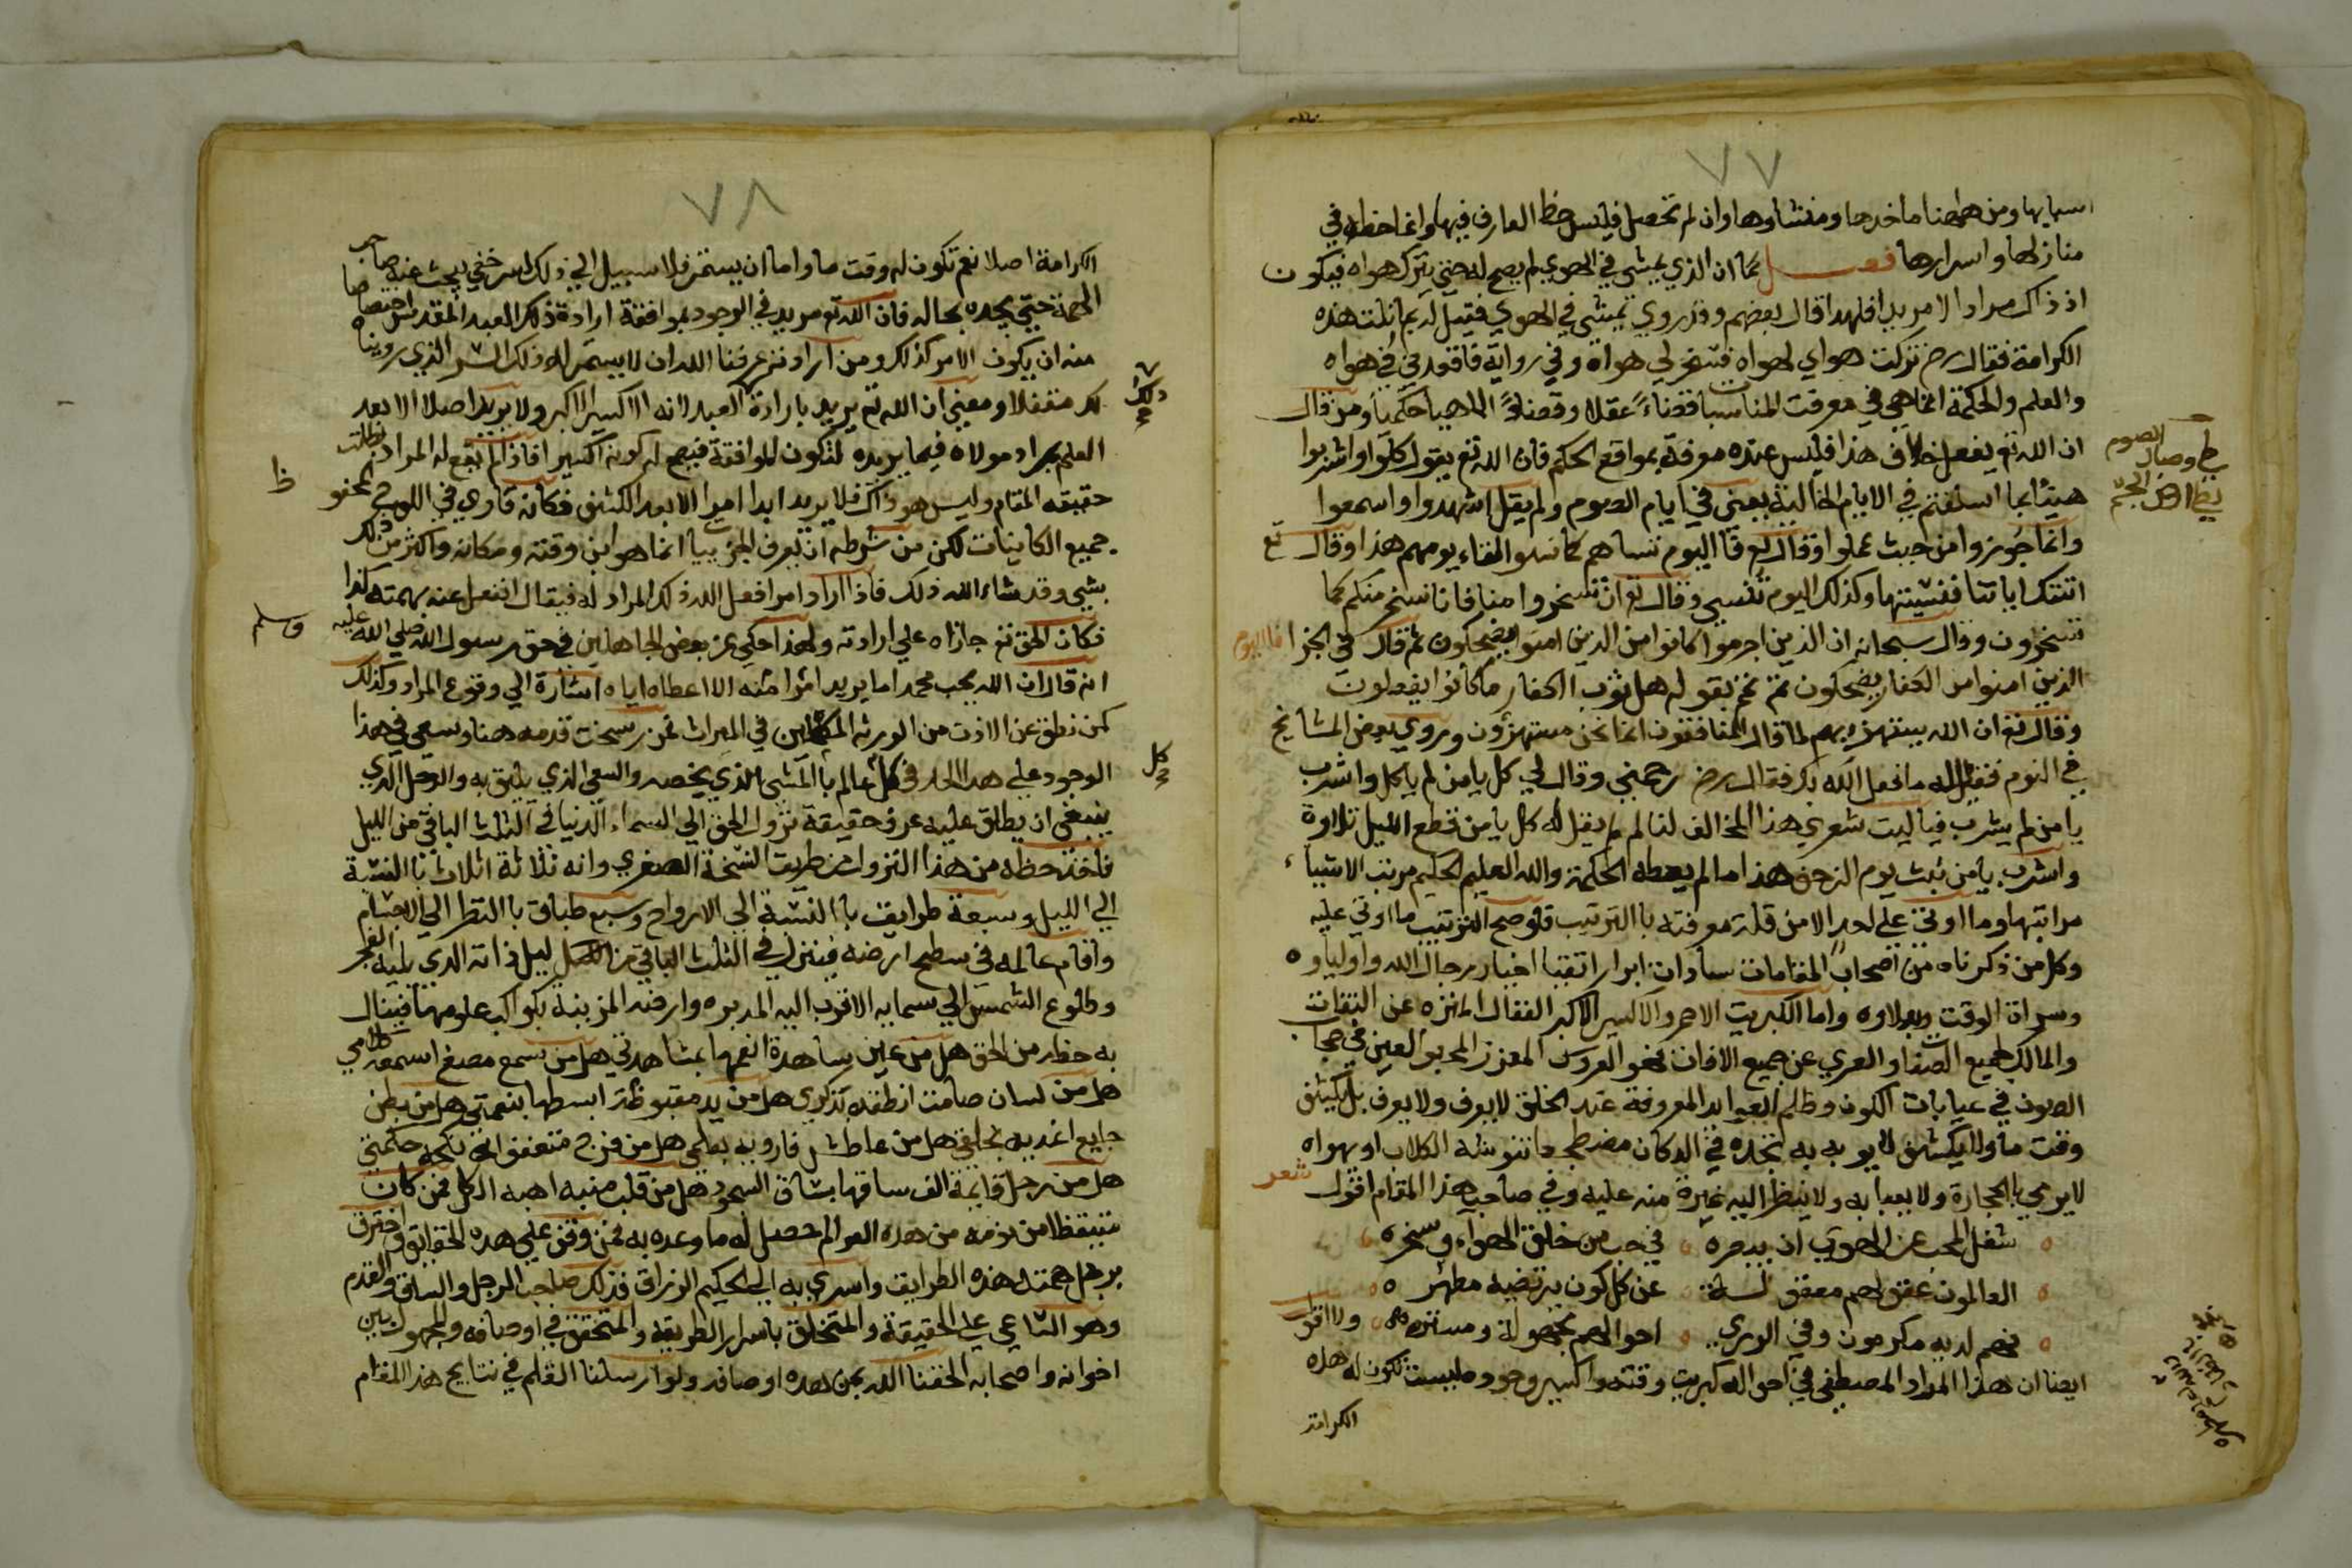 ٧٧
اسبابها ومن همهنا ماخدها ومنشاوها وان لم تحصل فليس حظ العارف فيها وانما حظه في
منازلها واسرارها فصـــل كما ان الذي يمشي في الهوي لم يصح له حتي يترك هواه فيكون
اذ ذاك مرادا لا مريدا فلهذا قال بعضهم وقد روي يمشي في الهوي فقيل له بما نلت هذه
الكرامة فقال رض تركت هواي لهواه فسخر لي هواه وفي رواية فاقعدني في هواه
والعلم والحكمة انما هي في معرفت المناسبات قضاءً عقلا وقضاءً الاهيا حكميا ومن قال
ان الله تع يفعل خلاف هذا فليس عنده معرفة بمواقع الحكم فان الله تع يقول كلوا واشربوا
هنيئا بما اسلفتم في الايام الخالية يعني في ايام الصوم ولم يقل اشهدوا واسمعوا
وانما جوزوا من حيث عملوا وقال تع فاليوم ننساهم كما نسوا لقاء يومهم هذا وقال تع
اتتك اياتنا فنسيتها وكذلك اليوم تنسي وقال تع ان تسخروا منا فانا نسخر منكم كما
تسخرون وقال سبحانه ان الذين اجرموا كانوا من الذين امنوا يضحكون ثم قال في الجزا فاليوم
الذين امنوا من الكفار يضحكون ثم تمم بقوله هل ثوب الكفار ما كانوا يفعلون
وقال تع ان الله يستهزء بهم لما قال المنافقون انما نحن مستهزؤن وروي بعض المشائخ
في النوم فقيل له ما فعل الله بك فقال رض رحمني وقال لي كل يا من لم ياكل واشرب
يا من لم يشرب فيا ليت شعري هذا المخالف لنا لم لم يقل له كل يا من قطع الليل تلاوة
واشرب يا من ثبت يوم الزحف هذا ما لم يعطه الحكمة والله العليم الحكيم مرتب الاشياء
مراتبها وما اوتي علي احد الا من قلة معرفته باالترتيب فلو صح الترتيب ما اوتي عليه
وكل من ذكرناه من اصحاب المقامات سادات ابرار اتقيا اخيار رجال الله واولياوه
وسراة الوقت وبدلاوه واما الكبريت الاحمر والاكسير الاكبر الفعال المنزه عن الثقات
والمالك لجميع الصفات والعري عن جميع الافات فهو العروس المعزز المحبوب العين في حجاب
الصون في غيابات الكون وظلم العوايد المعروفة عند الخلق لا يعرف ولا يعرف بل يكشف
وقت ما ولا يكشف لا يوبه به تجده في الدكان مضطجعا تنوشه الكلاب او بهواه
لا يرمي باالحجارة ولا يعبا به ولا ينظر اليه غيرة منه عليه وفي صاحب هذا المقام اقول شعر
شغل المحب عن الهوي ان بدمره في حب من خلق الهواء وسخره
العالمون عقولهم معقولة عن كل كون يرتضيه مطهره
فهم لديه مكرمون وفي الوري احوالهم مجهولة ومستره ولا اقول
ايضا ان هذا المراد المصطفي في احواله كبريت وقته واكسير وجوده ليست تكون له هذه
الكرامة
الصوم
٧٨
الكرامة اصلا نعم تكون له وقت ما واما ان يستمر فلا سبيل الي ذلك لسر خفي يبحث عنه صاحب
الهمة حتي يجده بحاله فان الله تع مريد في الوجود بموافقة ارادة ذلك العبد المقدس اختصاصا
منه ان يكون الامر كذلك ومن اراد نزعرفنا الله ان لا يستمر له ذلك السر الذي رويناه
لك متفضلا ومعني ان الله تع يريد بارادة العبد لانه الاكسير الاكبر ولا يريد اصلا الا بعد
العلم بمراد مولاه فيما يريده لتكون الموافقة فيصح له كونه اكسيرا فاذا لم يقع له المراد بطلت
حقيقة المقام وليس هو ذاك فلا يريد ابدا امرا الا بعد الكشف فكانه قاري في اللوح المحفوظ
جميع الكاينات لكن من شرطه ان يعرف الجزييات انما هو ابن وقته ومكانه واكثر من ذلك
بشي وقد شاء الله ذلك فاذا اراد امرا فعل الله ذلك المراد له فيقال انفعل عنه بهمته كذا
فكان الحق تع جازاه علي ارادته ولهذا حكي عن بعض الجاهلين في حق رسول الله صلي الله عليه وسلم
انه قال ان الله يحب محمدا ما يريد امرا منه الا اعطاه اياه اشارة الي وقوع المراد وكذلك
كمن نطق عن الاذن من الورثة المكملين في الميراث فمن رسخت قدمه هنا وسعي في هذا
الوجود علي هذا الحد في كل عالم باالمشي الذي يخصه والسعي الذي يليق به والرجل الذي
ينبغي ان يطلق عليه عرف حقيقة نزول الحق الي السماء الدنيا في الثلث الباقي من الليل
فاخذ حظه من هذا النزول من طريق النسخة الصغري وانه ثلاثة اثلاث باالنسبة
الي الليل وسبعة طرايق باالنسبة الي الارواح وسبع طباق باالنظر الي الاجسام
واقام عالمه في سطح ارضه فينزل في الثلث الباقي من ليل ذاته الذي يليه الفجر
وطلوع الشمس الي سمايه الاقرب اليه المدبره وارضه المزينة بكواكب علومها فينال
به حظه من الحق هل من عين ساهدة انعمها بمشاهدتي هل من سمع مصغ اسمعه كلامي
هل من لسان صامت انطقه بذكري هل من يد مقبوضة ابسطها بنعمتي هل من بطن
جايع اغديه بخلقي هل من عاطش فارويه بعلمي هل من فرج متعفف انكحه حكمتي
هل من رجل قايمة الف ساقها بساق السجود هل من قلب منيب اهبه الكل فمن كان
متيقظا من نومه من هذه العوالم حصل له ما وعده به فمن وقف علي هذه الحقايق واخترق
برجل همته هذه الطرايق واسري به الي الحكيم الرزاق فذلك صاحب الرجل والساق والقدم
وهو الساعي علي الحقيقة والمتخلق باسرار الطريقة والمتحقق في اوصافه والمجهول بين
اخوانه واصحابه الحقنا الله بمن هذه اوصافه ولو ارسلنا القلم في نتايج هذا المقام
ذلك
كل
ظ